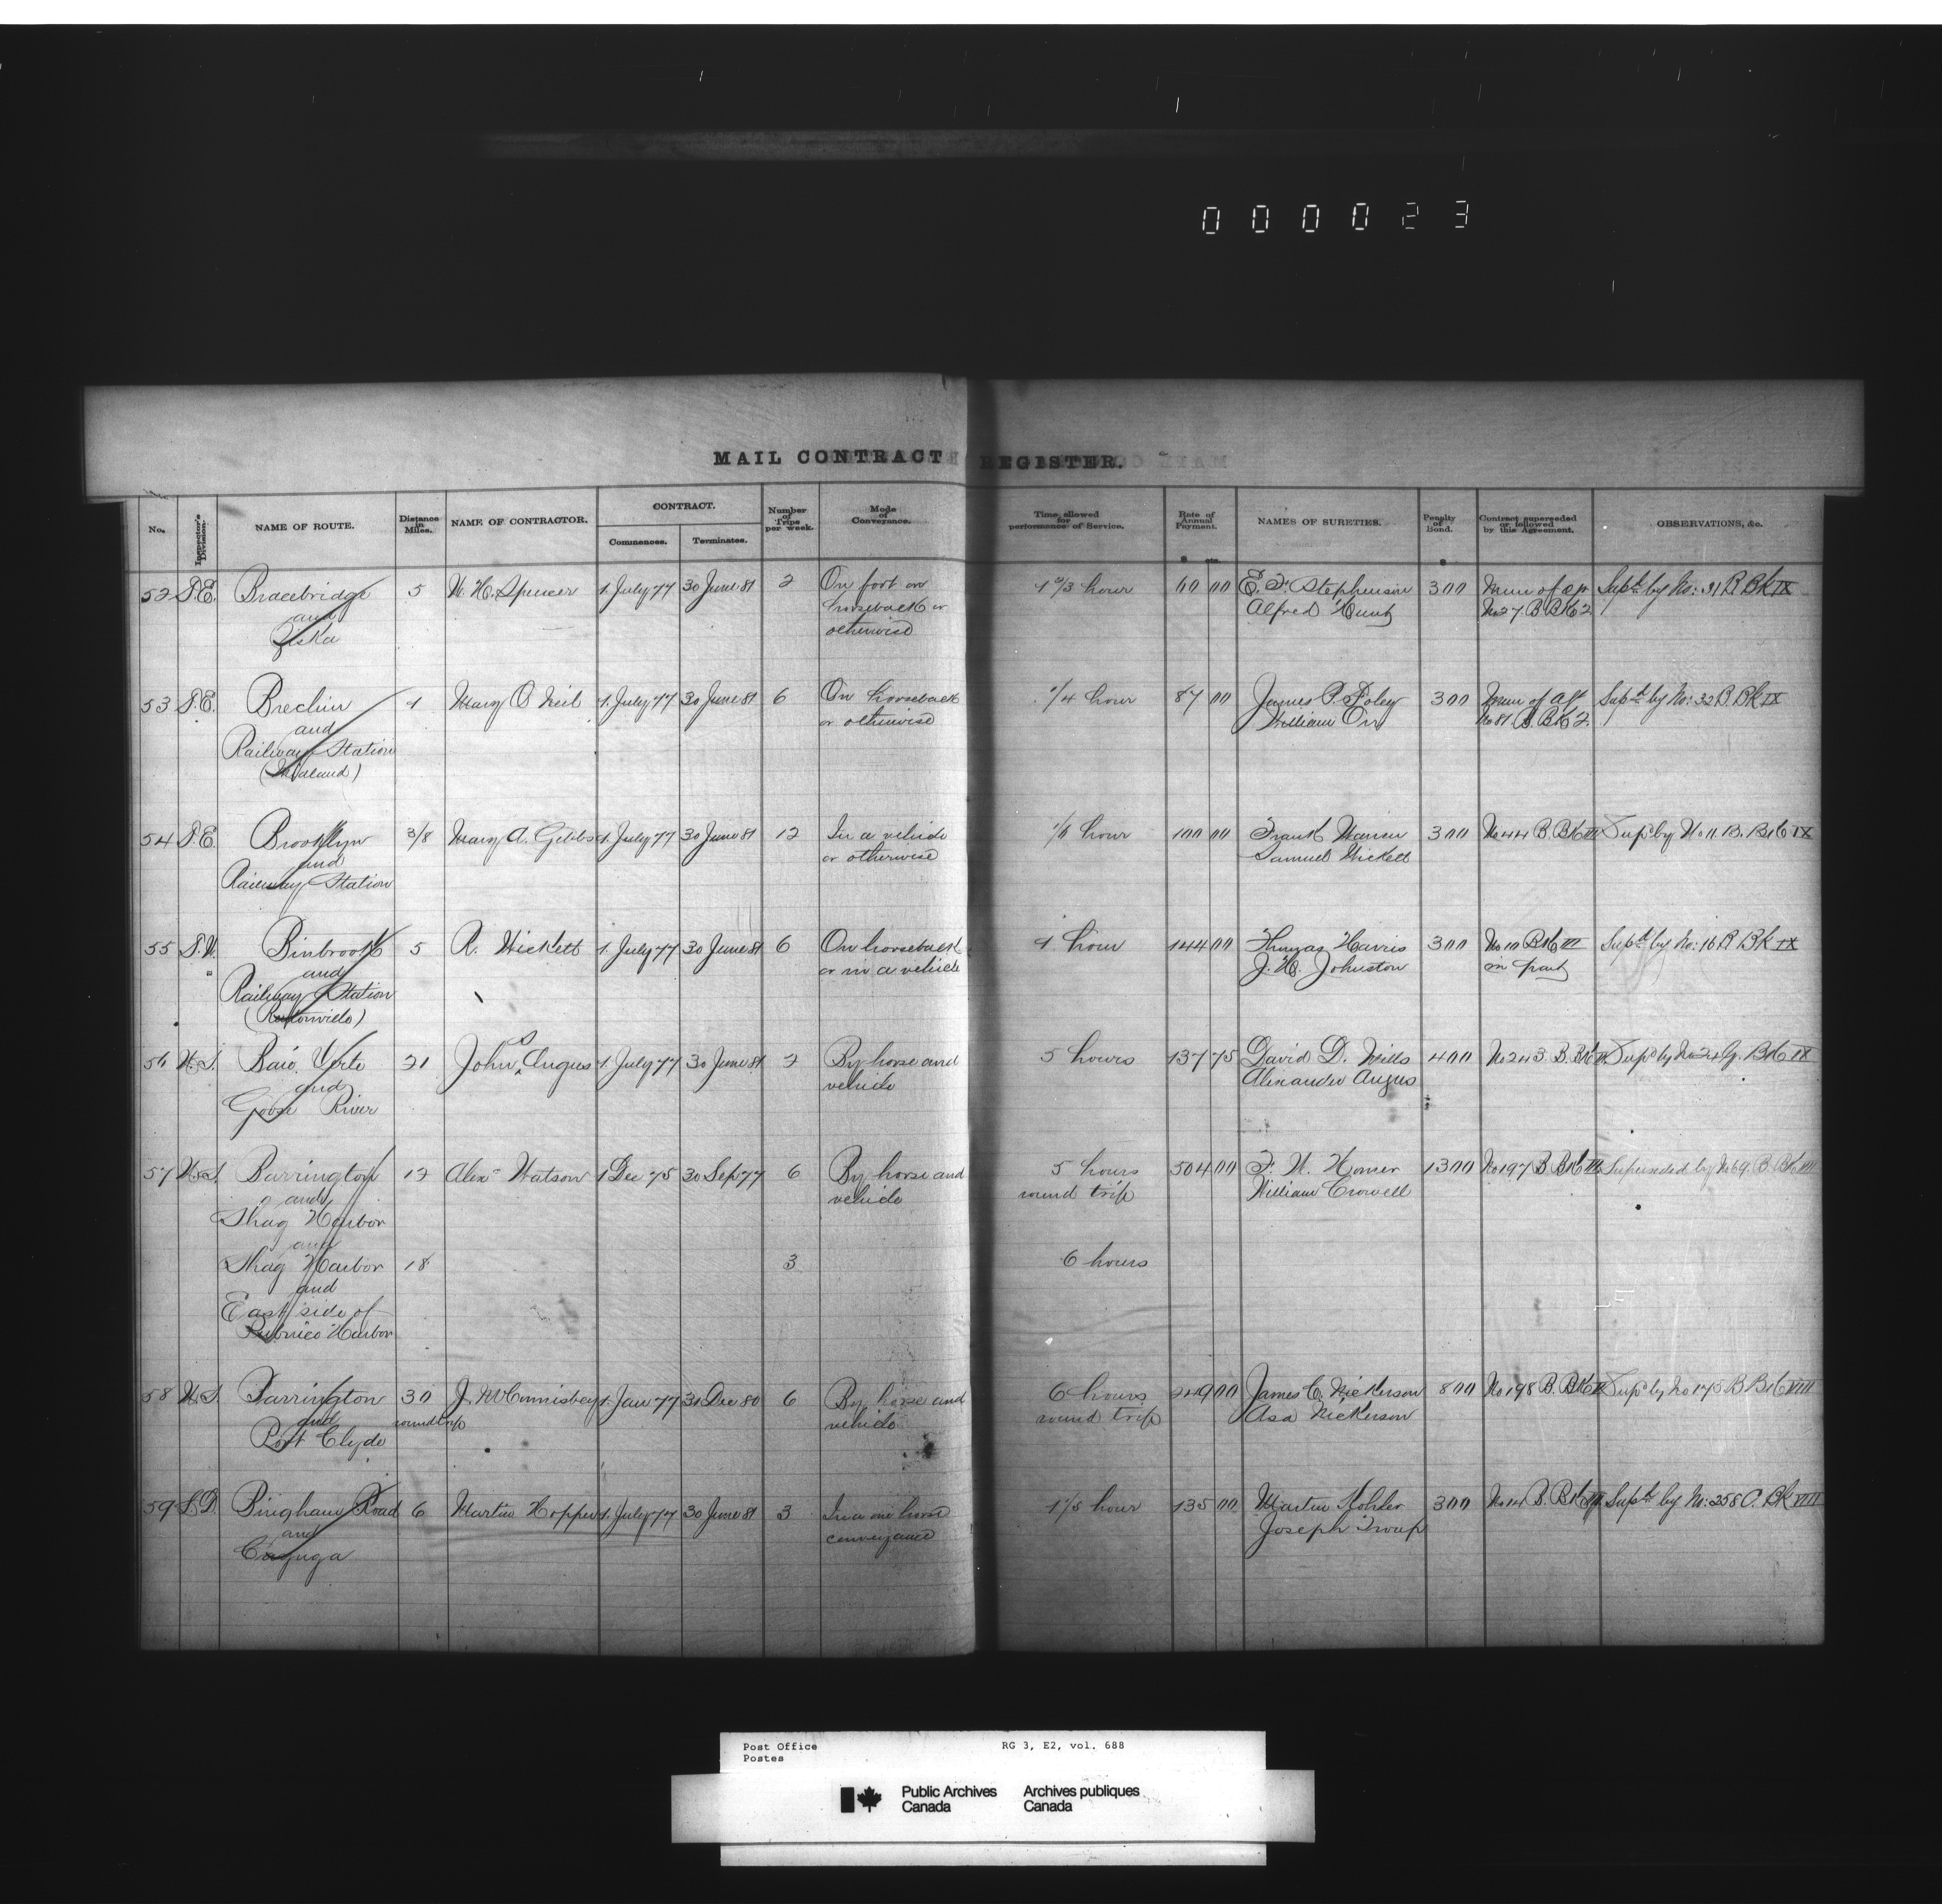 000023
MAIL CONTRACT REGISTER.
No. Inspector's Division. NAME OF ROUTE. Distance in Miles. NAME OF CONTRACTOR. CONTRACT. Commences. Terminates. Number of Trips per week. Mode of Conveyance. Time allowed for performance of Service. Rate of Annual Payment. $ cts. NAMES OF SURETIES. Penalty of Bond. $ Contract superseded or followed by this Agreement. OBSERVATIONS, &c.
52 T.E. Bracebridge 5 W. H. Spencer 1 July 77 30 June 81 2 On foot or 1 2/3 hour 60 00 E. F. Stephenson 300 Mem of agt Supd by No: 31 B Bk IX
and horseback or Alfred Hunt No 27. B Bk 2
Ziska otherwise
53 T.E. Brechin 1 Mary O Neil 1 July 77 30 June 81 6 On horseback 1/4 hour 87 00 James P. Foley 300 Mem of agt Supd by No: 32 B Bk IX
and or otherwise William Orr No 81 B. Bk 2.
Railway Station
(Midland)
54 T.E. Brooklyn 3/8 Mary A. Gibbs 1 July 77 30 June 81 12 In a vehicle 1/6 hour 100 00 Frank Warren 300 No 44 B Bk III Supd by No 11. B. Bk IX
and or otherwise Samuel Wickett
Railway Station
55 T.W. Binbrook 5 R. Wickett 1 July 77 30 June 81 6 On horseback 1 hour 144 00 Thomas Harris 300 No 10 Bk III Supd by No: 16 B Bk IX
and or in a vehicle J. H. Johnston in part
Railway Station
(Rentonville)
56 N.S. Baie Verte 21 John S Angus 1 July 77 30 June 81 2 By horse and 5 hours 137 75 David D. Mills 400 No 243. B. Bk Supd by No 24 G. Bk IX
and vehicle Alexander Angus
Goose River
57 N.S. Barrington 12 Alexr Watson 1 Dec 75 30 Sep 77 6 By horse and 5 hours 504 00 F. W. Homer 1300 No 197 B Bk III Superseded by No 69. B Bk III
and vehicle round trip William Crowell
Shag Harbor
and
Shag Harbor 18 3 6 hours
and
East side of
Pubnico Harbor
58 N.S. Barrington 30 J. McCommiskey 1 Jan 77 31 Dec 80 6 By horse and 6 hours 249 00 James C. Nickerson 800 No 198 B. Bk Supd by No 175 B Bk VIII
and round trip vehicle round trip Asa Nickerson
Port Clyde
59 L.D. Bingham Road 6 Martin Hopper 1 July 77 30 June 81 3 In a one horse 1 1/5 hour 135 00 Martin Kohler 300 No 14 B. Bk III Supd by No: 258 C. Bk VIII
and conveyance Joseph Troup
Cayuga
Post Office RG 3, E2, vol. 688
Postes
Public Archives Archives publiques
Canada Canada